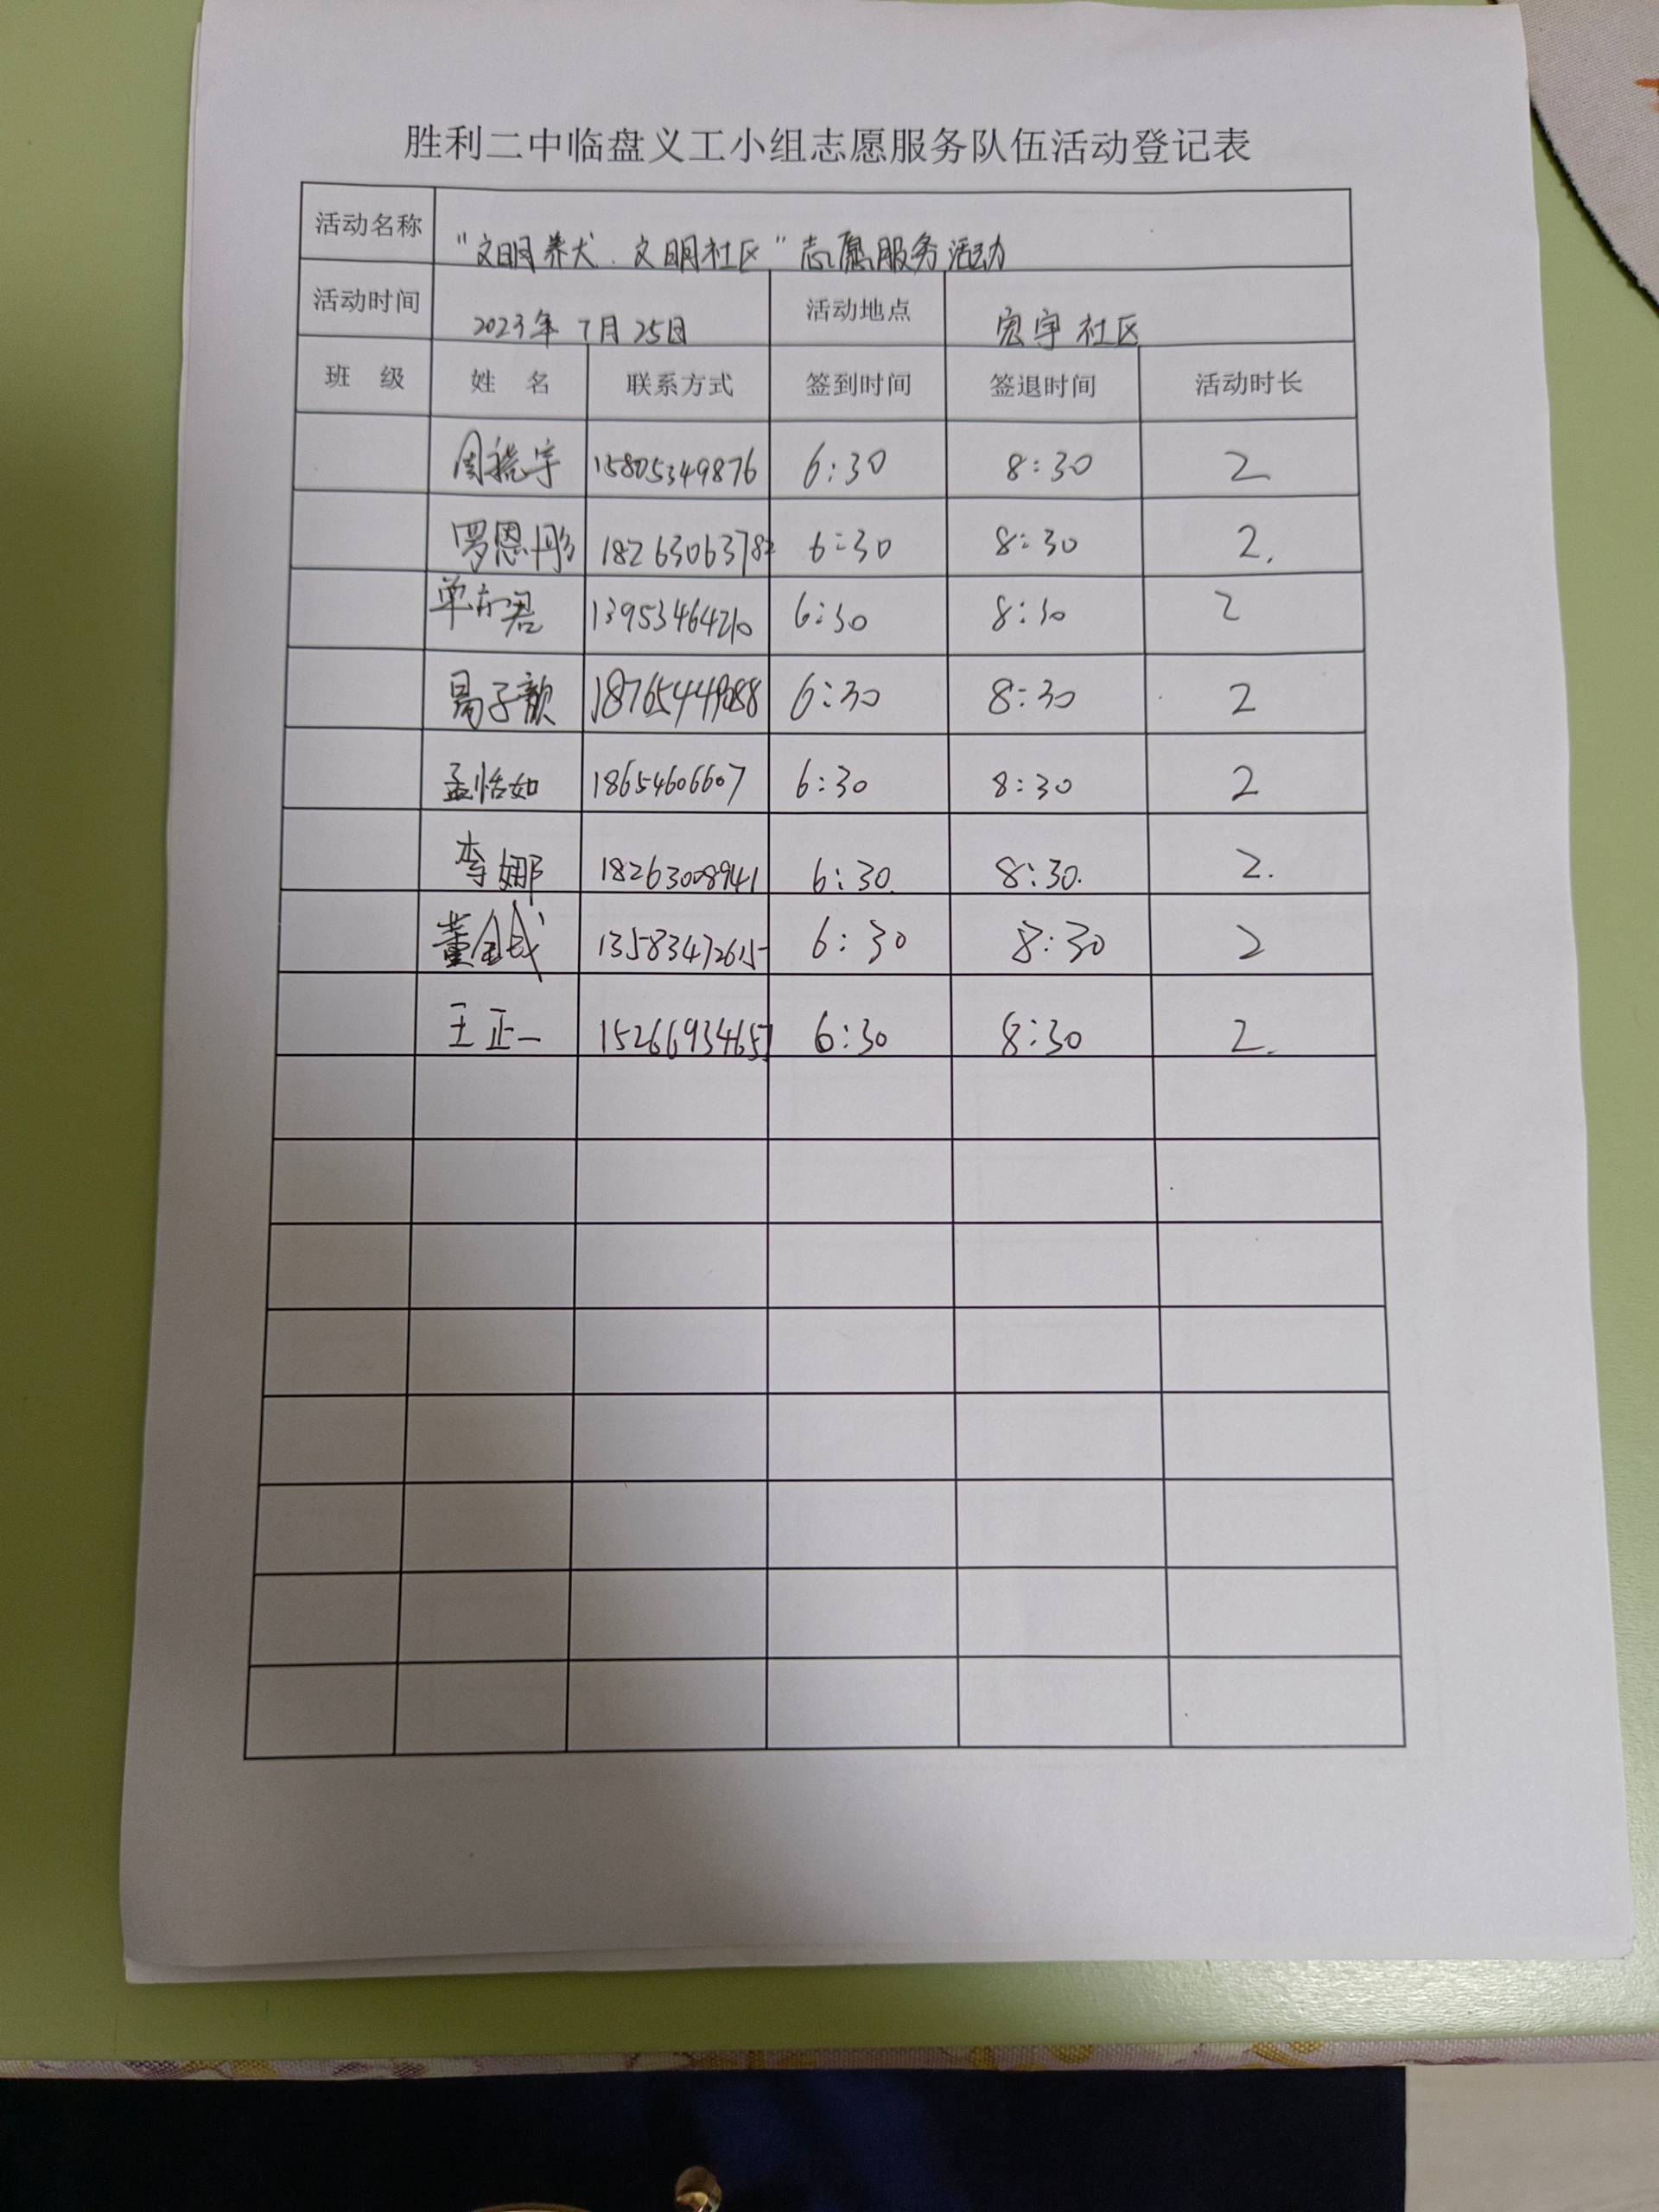 胜利二中临盘义工小组志愿服务队伍活动登记表
活动名称 "文明养犬.文明社区"志愿服务活动
活动时间 2023年7月25日 活动地点 宏宇社区
班 级 姓 名 联系方式 签到时间 签退时间 活动时长
15805349876 6:30 8:30 2
罗恩彤 18263063782 6:30 8:30 2.
13953464210 6:30 8:30 2
18765449088 6:30 8:30 2
孟恬如 18654606607 6:30 8:30 2
李娜 18263008941 6:30. 8:30. 2.
董金成 13583472615 6:30 8:30 2
王正一 15266934657 6:30 8:30 2.